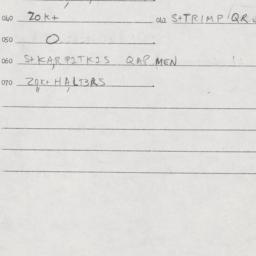 040 ZOK+ 042 S+TRIMP'QR
050 O
060 S+KARP2TK2S QAP MEN
070 ZOK+HALT3RS